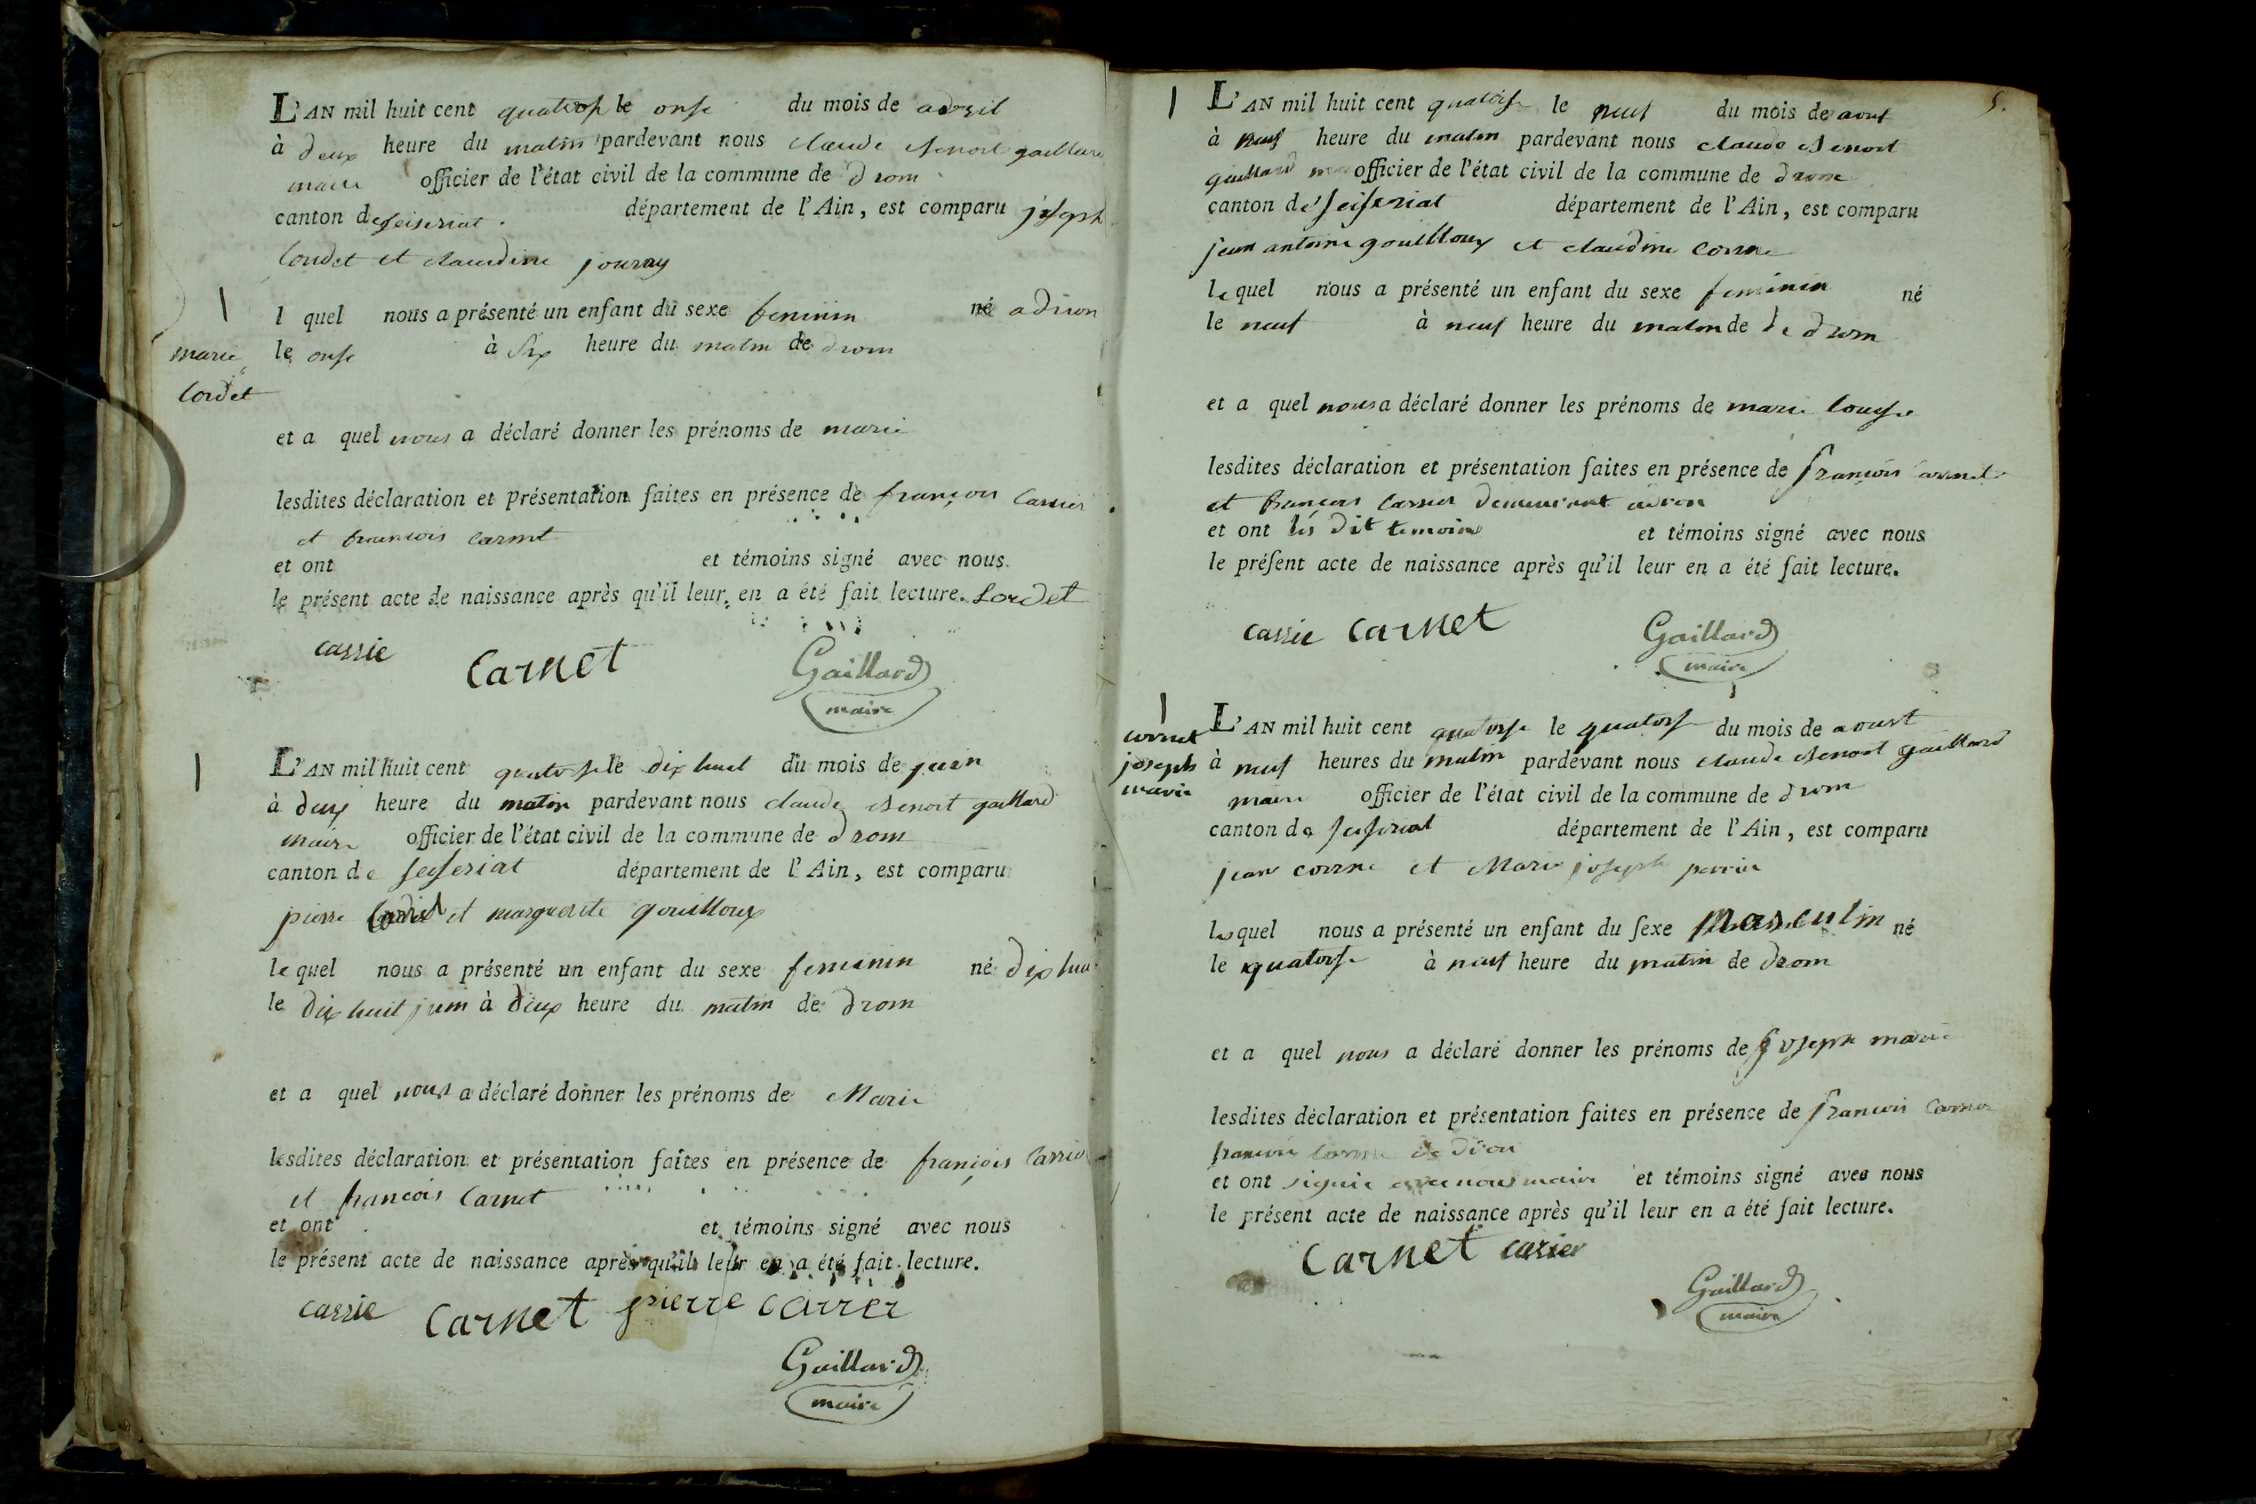 L'AN mil huit cent quatorse le onse du mois de avril
à deux heure du matin pardevant nous claude Benoit gaillard
maire officier de l'état civil de la commune de drom
canton de seiseriat département de l'Ain, est comparu joseph
Cordet et claudine journy
l quel nous a présenté un enfant du sexe feminin né a dron
le onse à six heure du matin de drom
marie
Cordet
et a quel nous a déclaré donner les prénoms de marie
lesdites déclaration et présentation faites en présence de françois Carrier
et francois Carnet
et ont et témoins signé avec nous
le présent acte de naissance après qu'il leur en a été fait lecture. Cordet
cassie Carnet Gaillard
maire
L'AN mil huit cent quatorse le dix huit du mois de juin
à deux heure du matin pardevant nous claude Benoit gaillard
maire officier de l'état civil de la commune de drom
canton de seiseriat département de l'Ain, est comparu
pierre et marguerite gouilloux
le quel nous a présenté un enfant du sexe feminin né dix hui
le dix huit juin à deux heure du matin de drom
et a quel nous a déclaré donner les prénoms de Marie
lesdites déclaration et présentation faites en présence de françois Carrier
et francois Carnet
et ont et témoins signé avec nous
le présent acte de naissance après qu'il leur en a été fait lecture.
cassie Carnet pierre carrer
Gaillard
maire
5.
L'AN mil huit cent quatorse le neuf du mois de aout
à neuf heure du matin pardevant nous claude Benoit
gaillard maire officier de l'état civil de la commune de drom
canton de seiseriat département de l'Ain, est comparu
jean antoine gouilloux et claudine Corne
le quel nous a présenté un enfant du sexe feminin né
le neuf à neuf heure du matin de de drom
et a quel nous a déclaré donner les prénoms de marie louise
lesdites déclaration et présentation faites en présence de françois Carnet
et françois Carrier demeurant a dron
et ont les dit temoins et témoins signé avec nous
le présent acte de naissance après qu'il leur en a été fait lecture.
cassie Carnet Gaillard
maire
cornet
joseph
marie
L'AN mil huit cent quatorse le quatorse du mois de aoust
à neuf heures du matin pardevant nous claude Benoit gaillard
maire officier de l'état civil de la commune de drom
canton de seiseriat département de l'Ain, est comparu
jean corne et Marie joseph perrin
les quel nous a présenté un enfant du sexe Masculin né
le quatorse à neuf heure du matin de drom
et a quel nous a déclaré donner les prénoms de joseph marie
lesdites déclaration et présentation faites en présence de francois Carrier
francois de dron
et ont signé avec nous maire et témoins signé avec nous
le présent acte de naissance après qu'il leur en a été fait lecture.
Carnet casier
Gaillard
maire